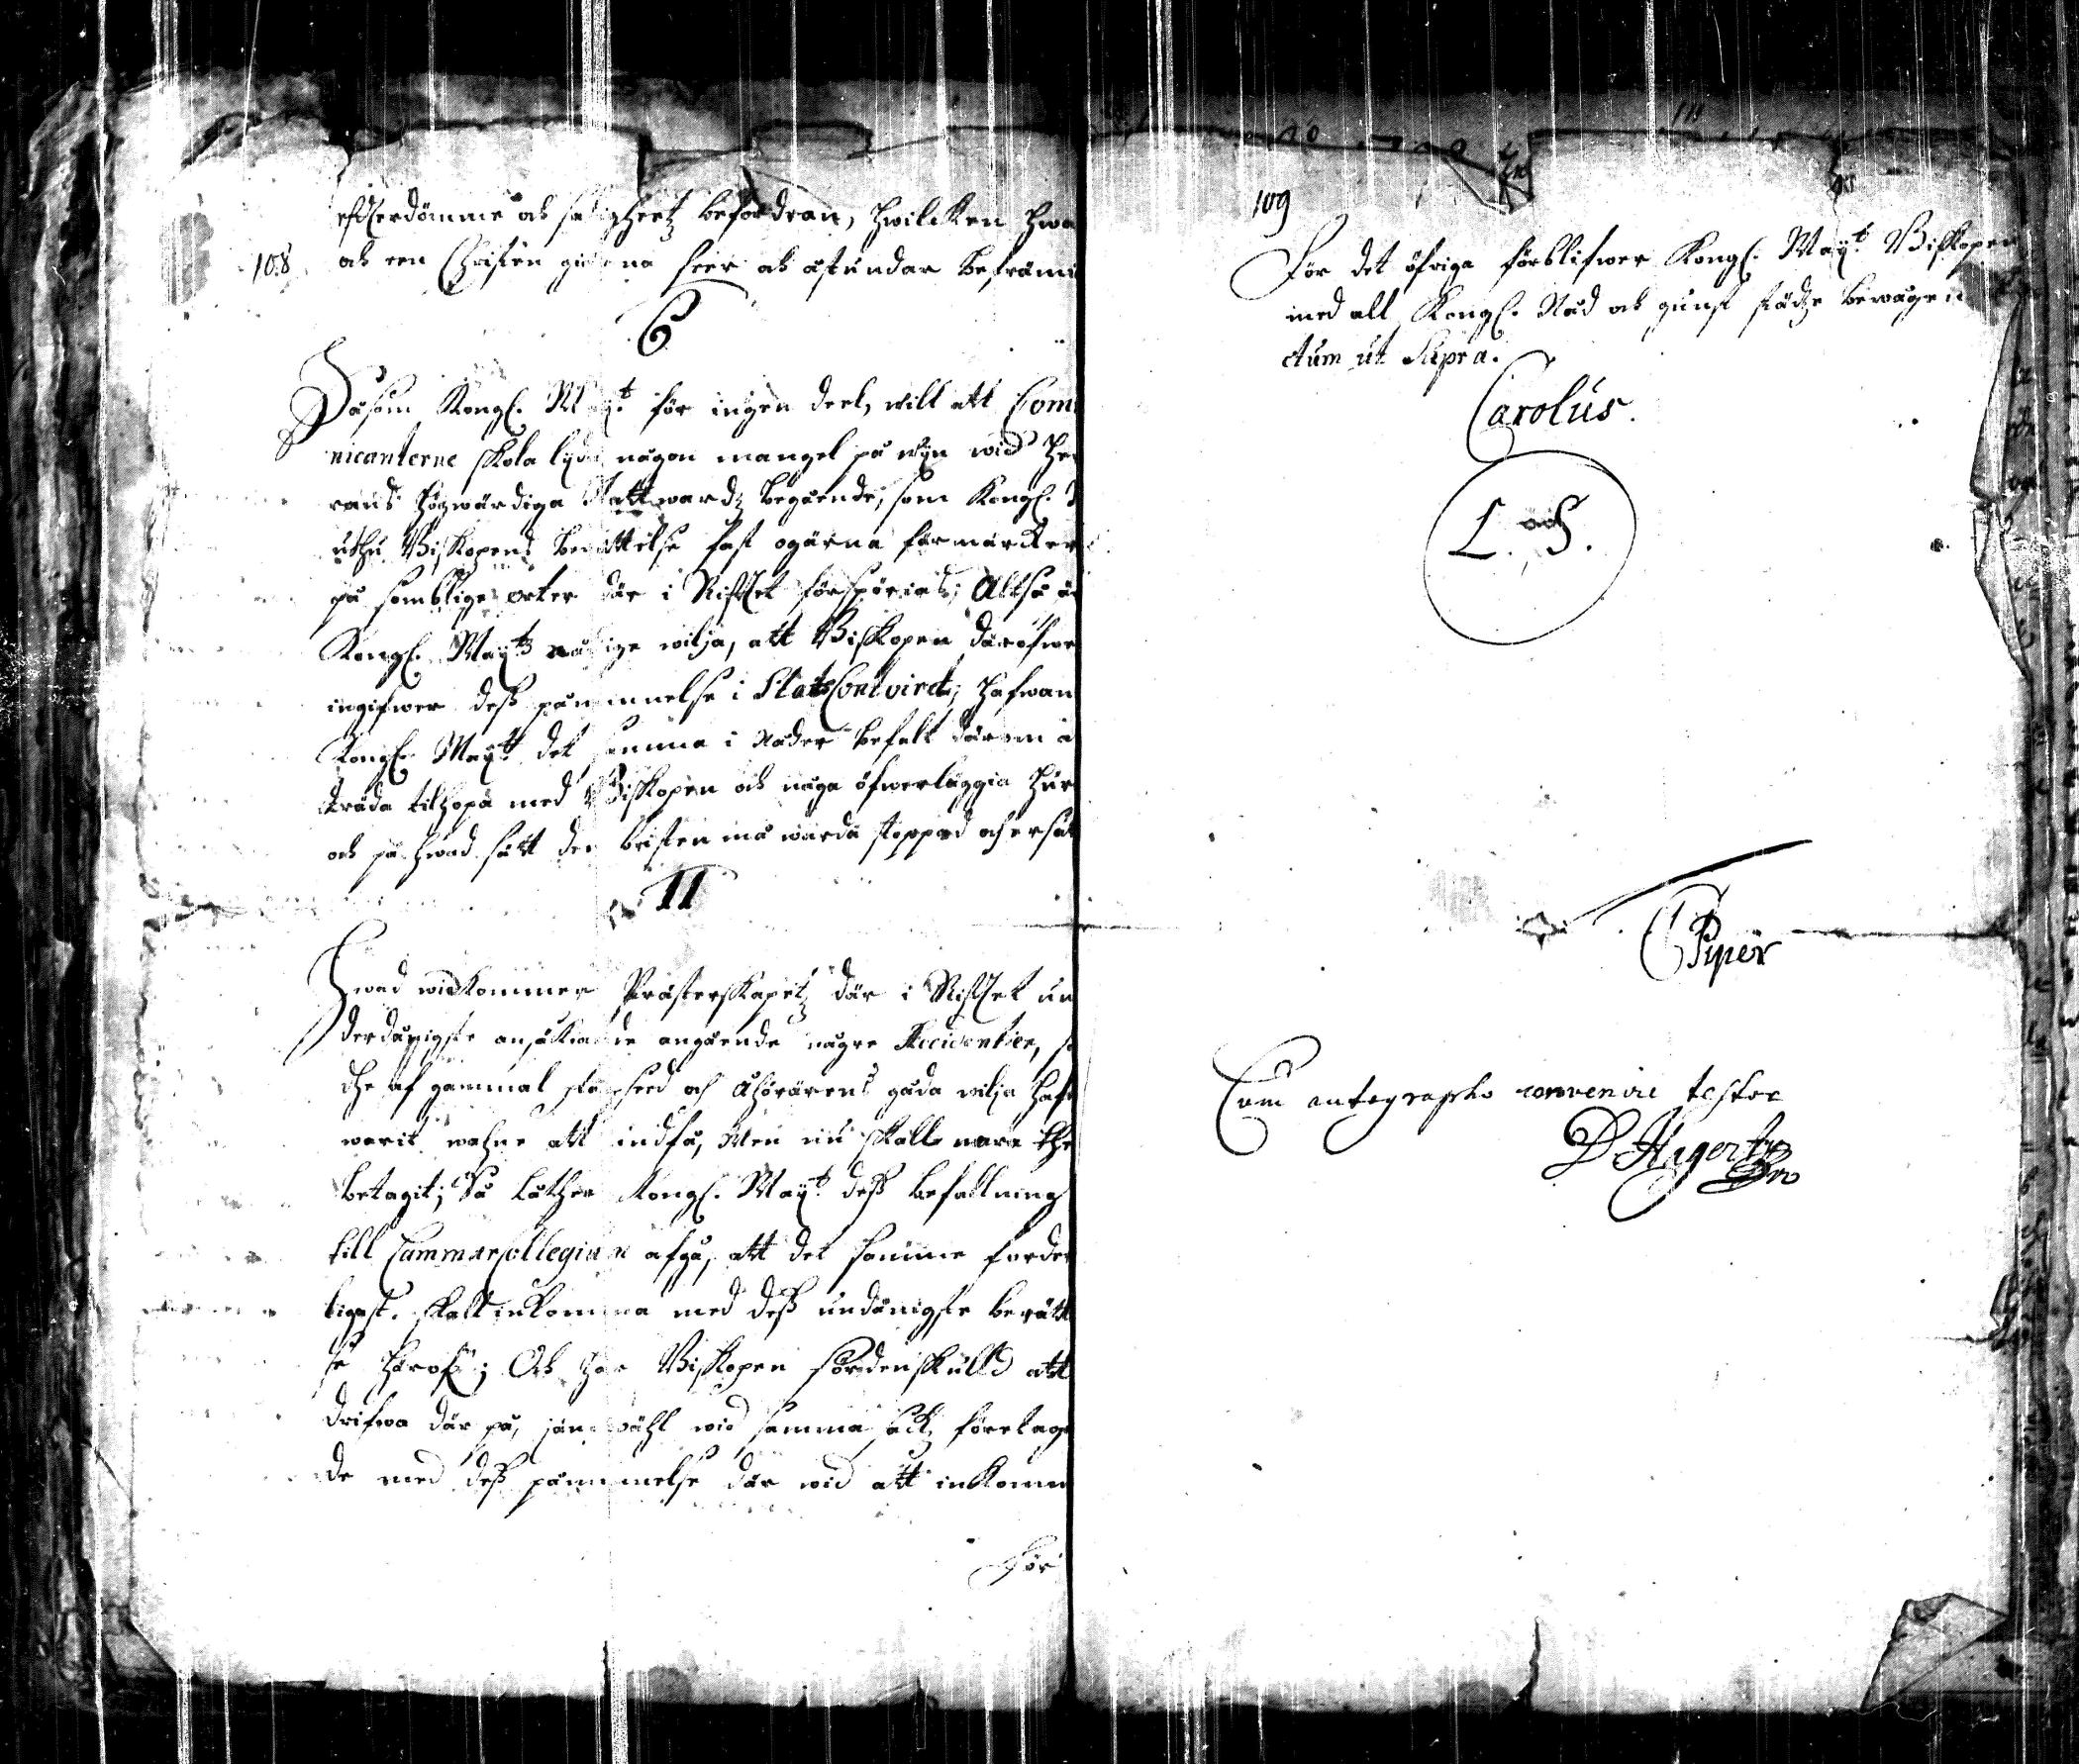 108
efterdömme och saligheetz befordran, hwilcken hwa
och een Christen gierna seer och åstundar befräm
6
Såsom Kongl. May:t för ingen deel, will att Com
nicanterne skola lyda någon mangel på wijn wid He
rans högwärdiga Nattwardz begående, som Kongl.
uthu Biskopens berättelse fast ogärna förmärcker
på somblige orter där i Stifftet förspörias; Altså är
Kongl. May:tz nådige wilja, att Biskopen däröfwer
ingifwer dess påminnelse i StatsContoiret; hafwan
Kongl. May:tt det samma i Nåder befalt därom
träda tilhopa med Biskopen och noga öfwerläggia huru
och på hwad sätt den bristen må warda stoppad och ersat
11
Hwad widkommer Prästerskapetz där i Stifftet un
derdånigste ansökiande angående någre Accidentier, s
dhe af gammal sed och åhörarens goda wilja haf
warit wahne att indfå, Men nu skall wara the
betagit; Så låther Kongl. May:t dess befallning
till Cammarcollegium afgå, att det samma forder
ligast skall inkomma med dess undånigste berätt
se härof; Och har Biskopen fördenskulld att
drifwa där på, jämwähl wid samma sackz företag
de med dess påminnelse där wid att inkomm
För
109
För det öfriga förblifwer Kongl. May:t Biskopen
med all Kongl. Nåd och gunst städze bewågen
ctum ut Supra.
Carolus.
L. S.
C Piper
Cum autographo convenire testor